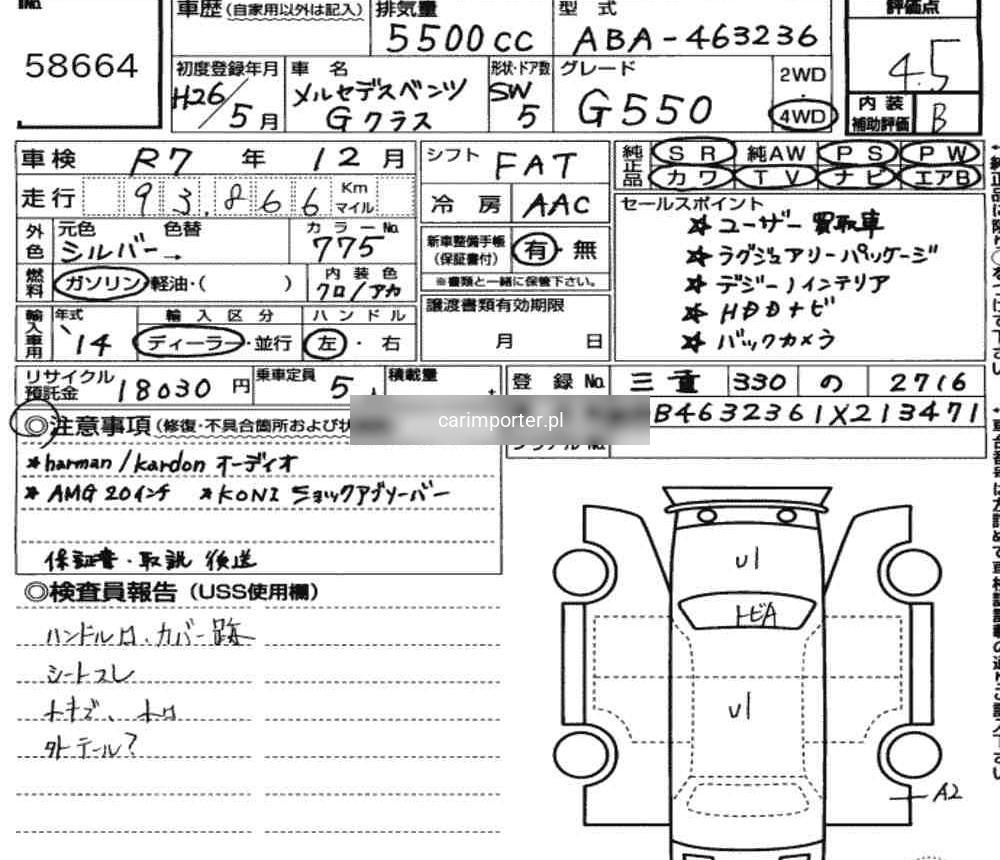 No.
58664
車歴(自家用以外は記入)
排気量
5500cc
型 式
ABA-463236
評価点
4.5
初度登録年月
H26/5月
車 名
メルセデスベンツ
Gクラス
形状・ドア数
SW
5
グレード
G550
2WD
・
4WD
内 装
補助評価
B
車検 R7 年 12 月
走行 93,866 Km
マイル
外色
元色 色替
シルバー→
カラーNo.
775
燃料
ガソリン・軽油・( )
内 装 色
クロ/アカ
輸入車用
年式
'14
輸 入 区 分
ディーラー・並行
ハ ン ド ル
左・右
シフト FAT
冷 房 AAC
新車整備手帳
(保証書付)
有・無
※書類と一緒に保管下さい。
譲渡書類有効期限
月 日
純正品
SR 純AW PS PW
カワ TV ナビ エアB
セールスポイント
☆ ユーザー買取車
☆ ラグジュアリーパッケージ
☆ デジーノインテリア
☆ HDDナビ
☆ バックカメラ
リサイクル
預託金
18030 円
乗車定員 5人
積載量
登 録 No. 三重 330 の 2716
B4632361X213471
シリアルNo.
carimporter.pl
◎注意事項(修復・不具合箇所および
*harman/kardon オーディオ
* AMG 20インチ *KONI ショックアブソーバー
保証書・取説 後送
◎検査員報告(USS使用欄)
シートスレ
外テール?
U1
トビA
U1
A2